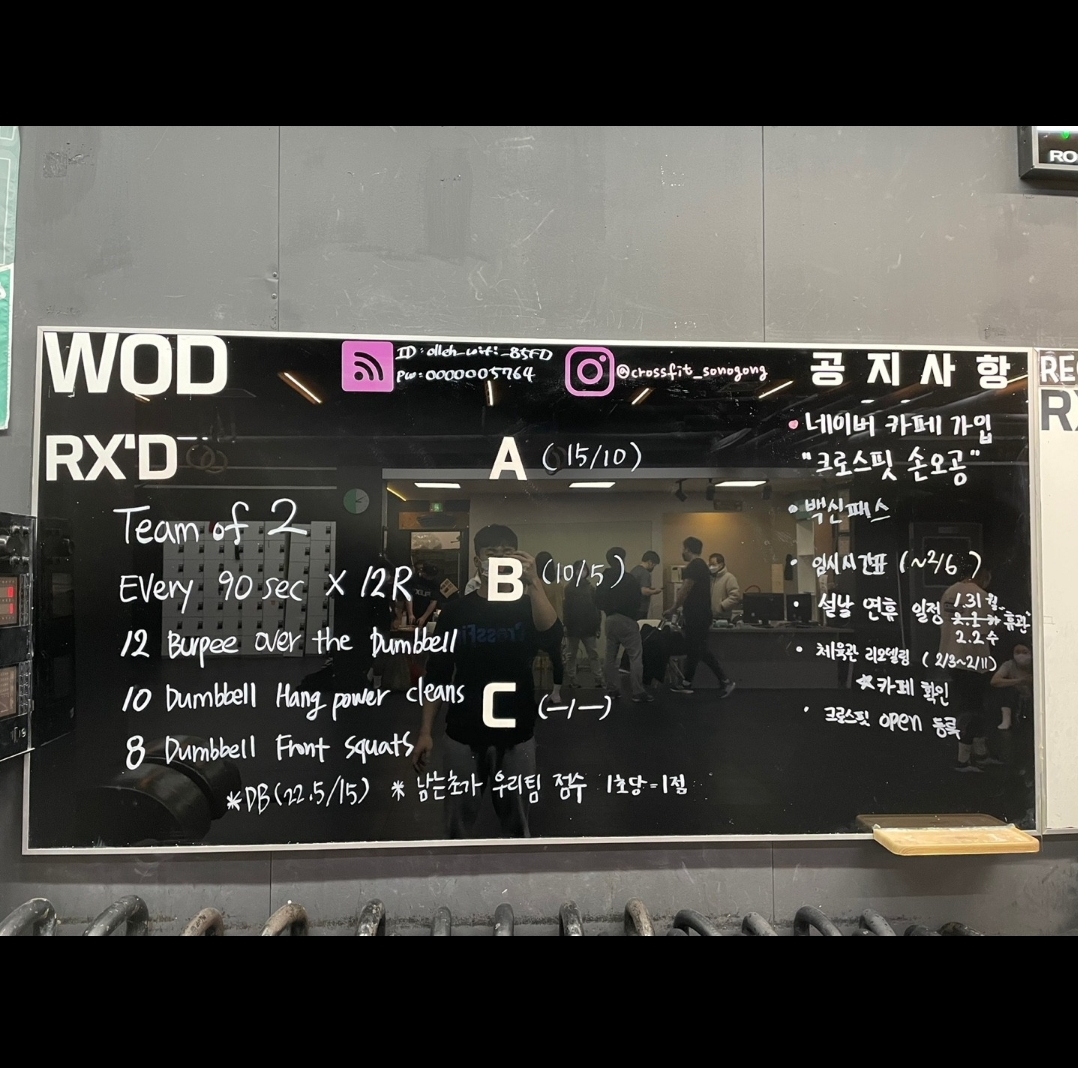 WOD
ID: olleh_wifi_85FD
PW: 0000005764
@crossfit_sonogong
RX'D
Team of 2
Every 90 sec X 12R
12 Burpee over the Dumbbell
10 Dumbbell Hang power cleans
8 Dumbbell Front squats
*DB(22.5/15) * 남는초가 우리팀 점수 1초당=1점
A (15/10)
B (10/5)
C (—/—)
공지사항
• 네이버 카페 가입
"크로스핏 손오공"
• 백신패스
• 임시시간표 (~2/6)
• 설날 연휴 일정 1.31월 휴관
2.2수
• 체육관 리모델링 (2/3~2/11)
*카페 확인
• 크로스핏 open 등록
RO
RE
RX